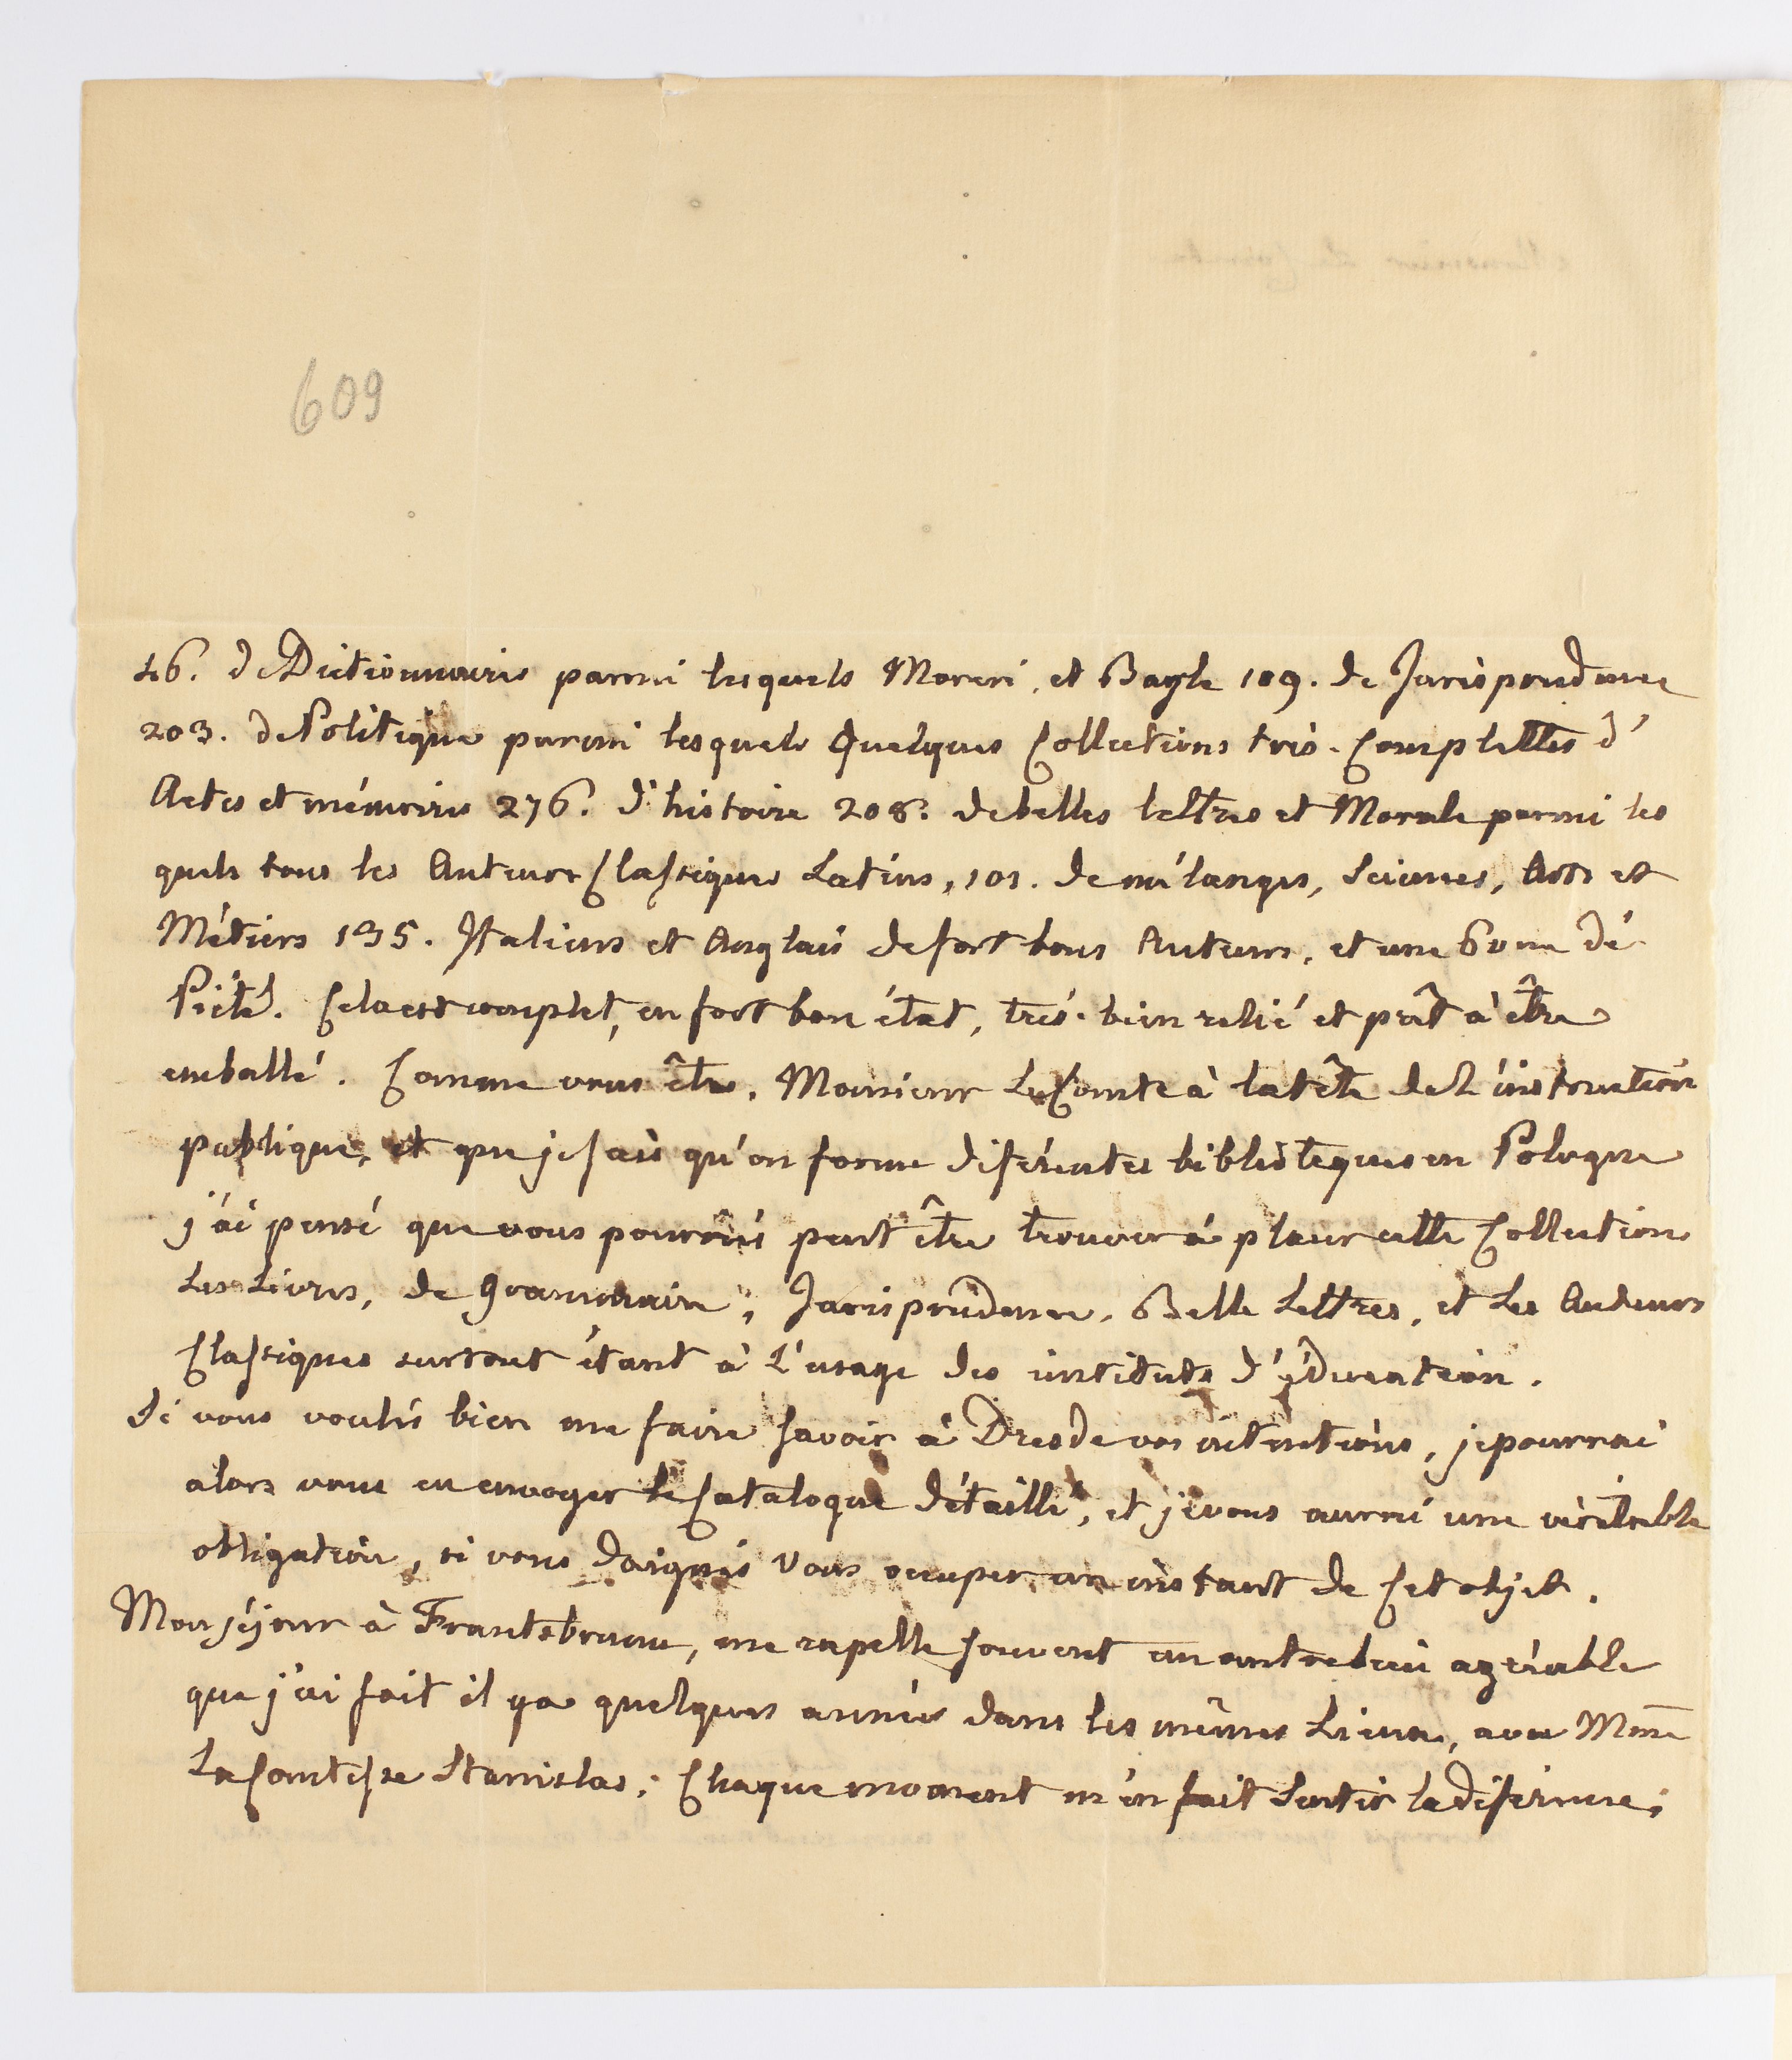 609
46. de Dictionnaires parmi lesquels Moreri, et Bayle 109. de Jurisprudence
203. de Politique parmi lesquels Quelques Collections très-Complettes d'
Actes et mémoires 276. d'histoire 208. de belles lettres et Morale parmi les
quels tous les Auteurs Classiques Latins, 101. de mélanges, Sciences, Arts et
Métiers 135. Italiens et Anglais de fort bons Auteurs, et une 60ne de
Piété. Cela est complet, en fort bon état, très-bien relié et prêt à être
emballé. Comme vous êtes, Monsieur Le Comte à la tête de L'instruction
publique, et que je sais qu'on forme diférentes biblioteques en Pologne
j'ai pensé que vous pourriés peut être trouver à placer cette Collection
Les Livres, de Grammaire, Jurisprudence, Belle Lettres, et Les Auteurs
Classiques surtout étant à L'usage des intituts d'éducation.
Si vous voulés bien me faire savoir à Dresde vos intentions, je pourrai
alors vous en envoyer le Catalogue détaillé, et je vous aurai une véritable
obligation, si vous daignés vous ocuper un instant de Cet objet.
Mon séjour à Frantsbrunn, me rapelle souvent un antretien agréable
que j'ai fait il y a quelques années dans les mêmes Lieux, avec Mme
La Comtesse Stanislas; Chaque moment m'en fait sentir la diférence;